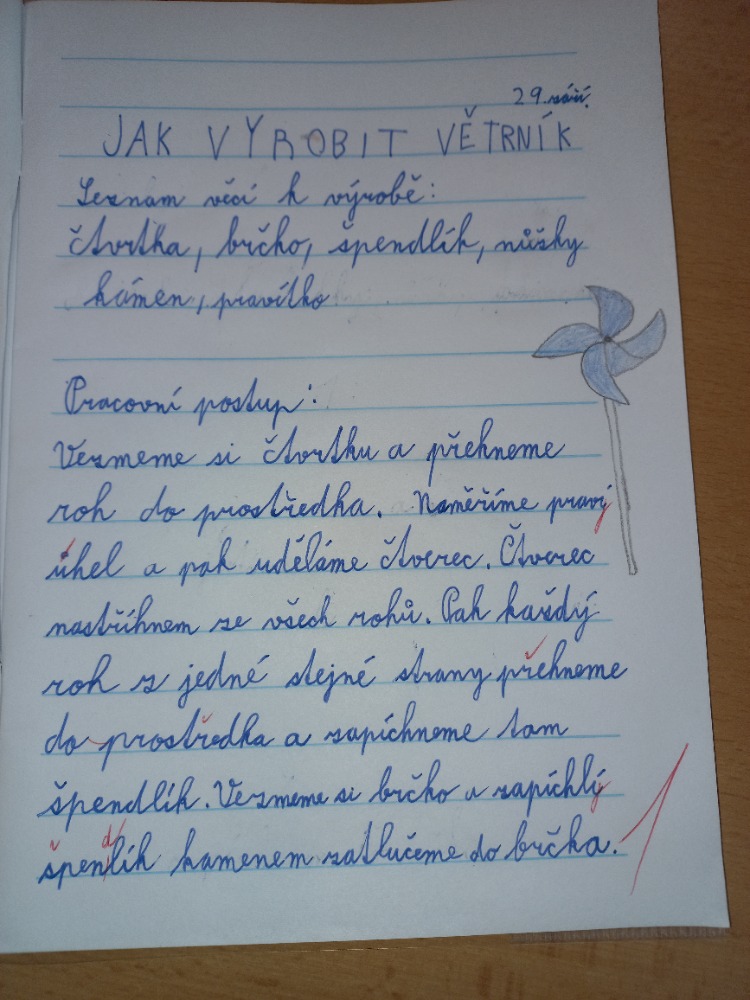 29. září.
JAK VYROBIT VĚTRNÍK
Seznam věcí k výrobě:
čtvrtka, brčko, špendlík, nůžky
kámen, pravítko
Pracovní postup:
Vezmeme si čtvrtku a přehneme
roh do prostředka. Naměříme pravý
úhel a pak uděláme čtverec. Čtverec
nastřihnem ze všech rohů. Pak každý
roh z jedné stejné strany přehneme
do prostředka a zapíchneme tam
špendlík. Vezmeme si brčko a zapíchlý
špendlík kamenem zatlučeme do brčka.
1